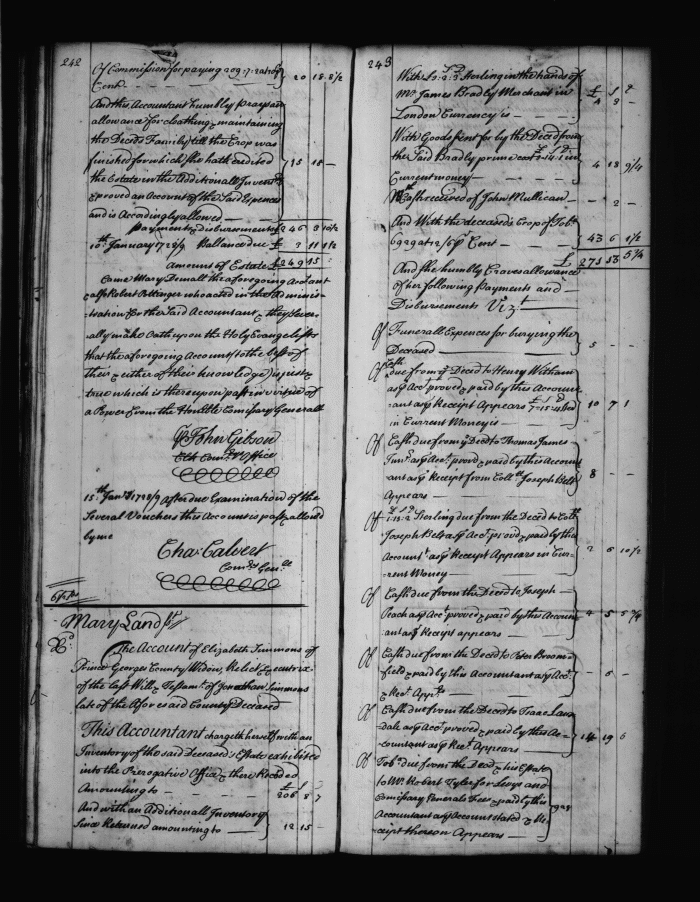 242
Of Commission for paying 209:7:2 at 10 p
Cent } 20 18 8½
And this Accountant humbly prays an
allowance for cloathing & maintaining
the Deced's Family till the Crop was
finished for which she hath credited
the Estate in the Additionall Inventory
& proved an Account of the said Expences
and is Accordingly allowed — } 15 18 —
Payments & Disbursements £246 3 10½
10th January 1728/9 Ballance due £3 11 1½
Amount of Estate £249 15
Came Mary Demall the aforegoing Acc't ant
also Robert Pottenger who acted in the Adminis-
tration for the said Accountant & they sever-
ally make Oath upon the Holy Evangelists
that the aforegoing Account to the best of
their & either of their knowledge is just &
true which is thereupon past in virtue of
a Power from the Hon'ble Comissary Generall
p John Gibson
Clk Com'rs Office
15th Jan'ry 1728/9 After due Examination of the
Several Vouchers this Account is past & allowed
by me
Cha: Calvert
Com'ry Gen'll
Mary Land ss
The Account of Elizabeth Simmons of
Prince Georges County Widow, Relict & Executrix
of the last Will & Testam't of Jonathan Simmons
late of the Aforesaid County Deceased
This Accountant chargeth herself with an
Inventory of the said Deceased's Estate exhibited
into the Prerogative Office & there Recorded
Amounting to — £206 8 7
And with an Additionall Inventory
Since Returned amounting to — } 12 15 —
243
With £3:2:3 Sterling in the hands of
Mr James Bradby Merchant in
London Currency is — £4 3 —
With Goods sent for by the Deced from
the said Bradby prime cost £2:14:1 in
Current money — } 4 18 9¼
With Cash received of John Mullican — 2 —
And With the deceased's Crop of Tob'o
6929 at 12/6 p Cent — } 43 6 1½
£271 13 5¾
And she humbly Craves allowance
of her following Payments and
Disbursements Viz't
Of Funerall Expences for burying the
Deceased — } 5 —
Of Cash due from y'e Deced to Henry Witham
as p Acc't proved & paid by this Account
ant as p Receipt Appears £7:15:4 Sterl
in Current Money is — } 10 7 1
Of Cash due from y'e Deced to Thomas James
Jun'r as p Acc't prov'd & paid by this Account
ant as p Receipt from Coll'o Joseph Belt
Appears — } 8 —
Of £1:13:2 Sterling due from the Deced to Coll'o
Joseph Belt as p Acc't prov'd & paid by this
Account't as p Receipt Appears in Cur-
rent Money — } 2 6 10½
Of Cash due from the Deced to Joseph
Peach as p Acc't proved & paid by this Accoun
ant as p Receipt appears — } 4 5 5¾
Of Cash due from the Deced to Peter Broom-
field & paid by this Accountant as p Acc't
& Rec't App'rs — } 5 —
Of Cash due from the Deced to Isaac Lans
dale as p Acc't proved & paid by this Ac-
countant as p Rec't Appears — } 14 19 6
Of Tob'o due from the Deced & his Estate
to Mr Robert Tyler for Levys and
Comissary Generals Fees & paid by this
Accountant as p Account stated & Re-
ceipt thereon Appears — }